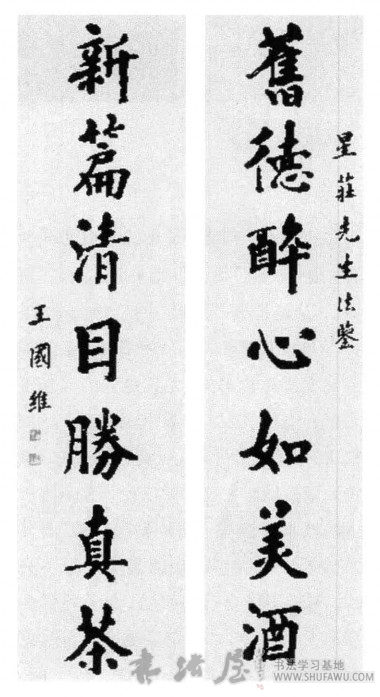 星莊先生法鑒
舊德醉心如美酒
新篇清目勝真茶
王國維
书法屋
书法学习基地
WWW.SHUFAWU.COM